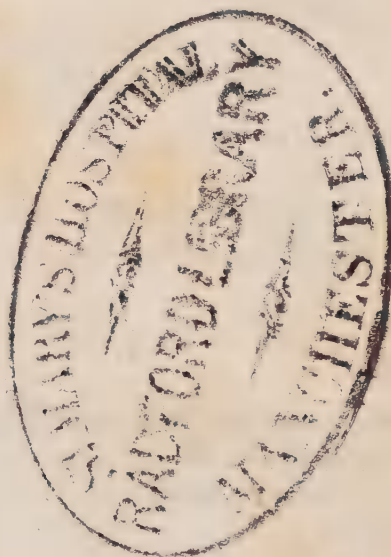 ST MARY'S HOSPITAL,
RADFORD LIBRARY
MANCHESTER.